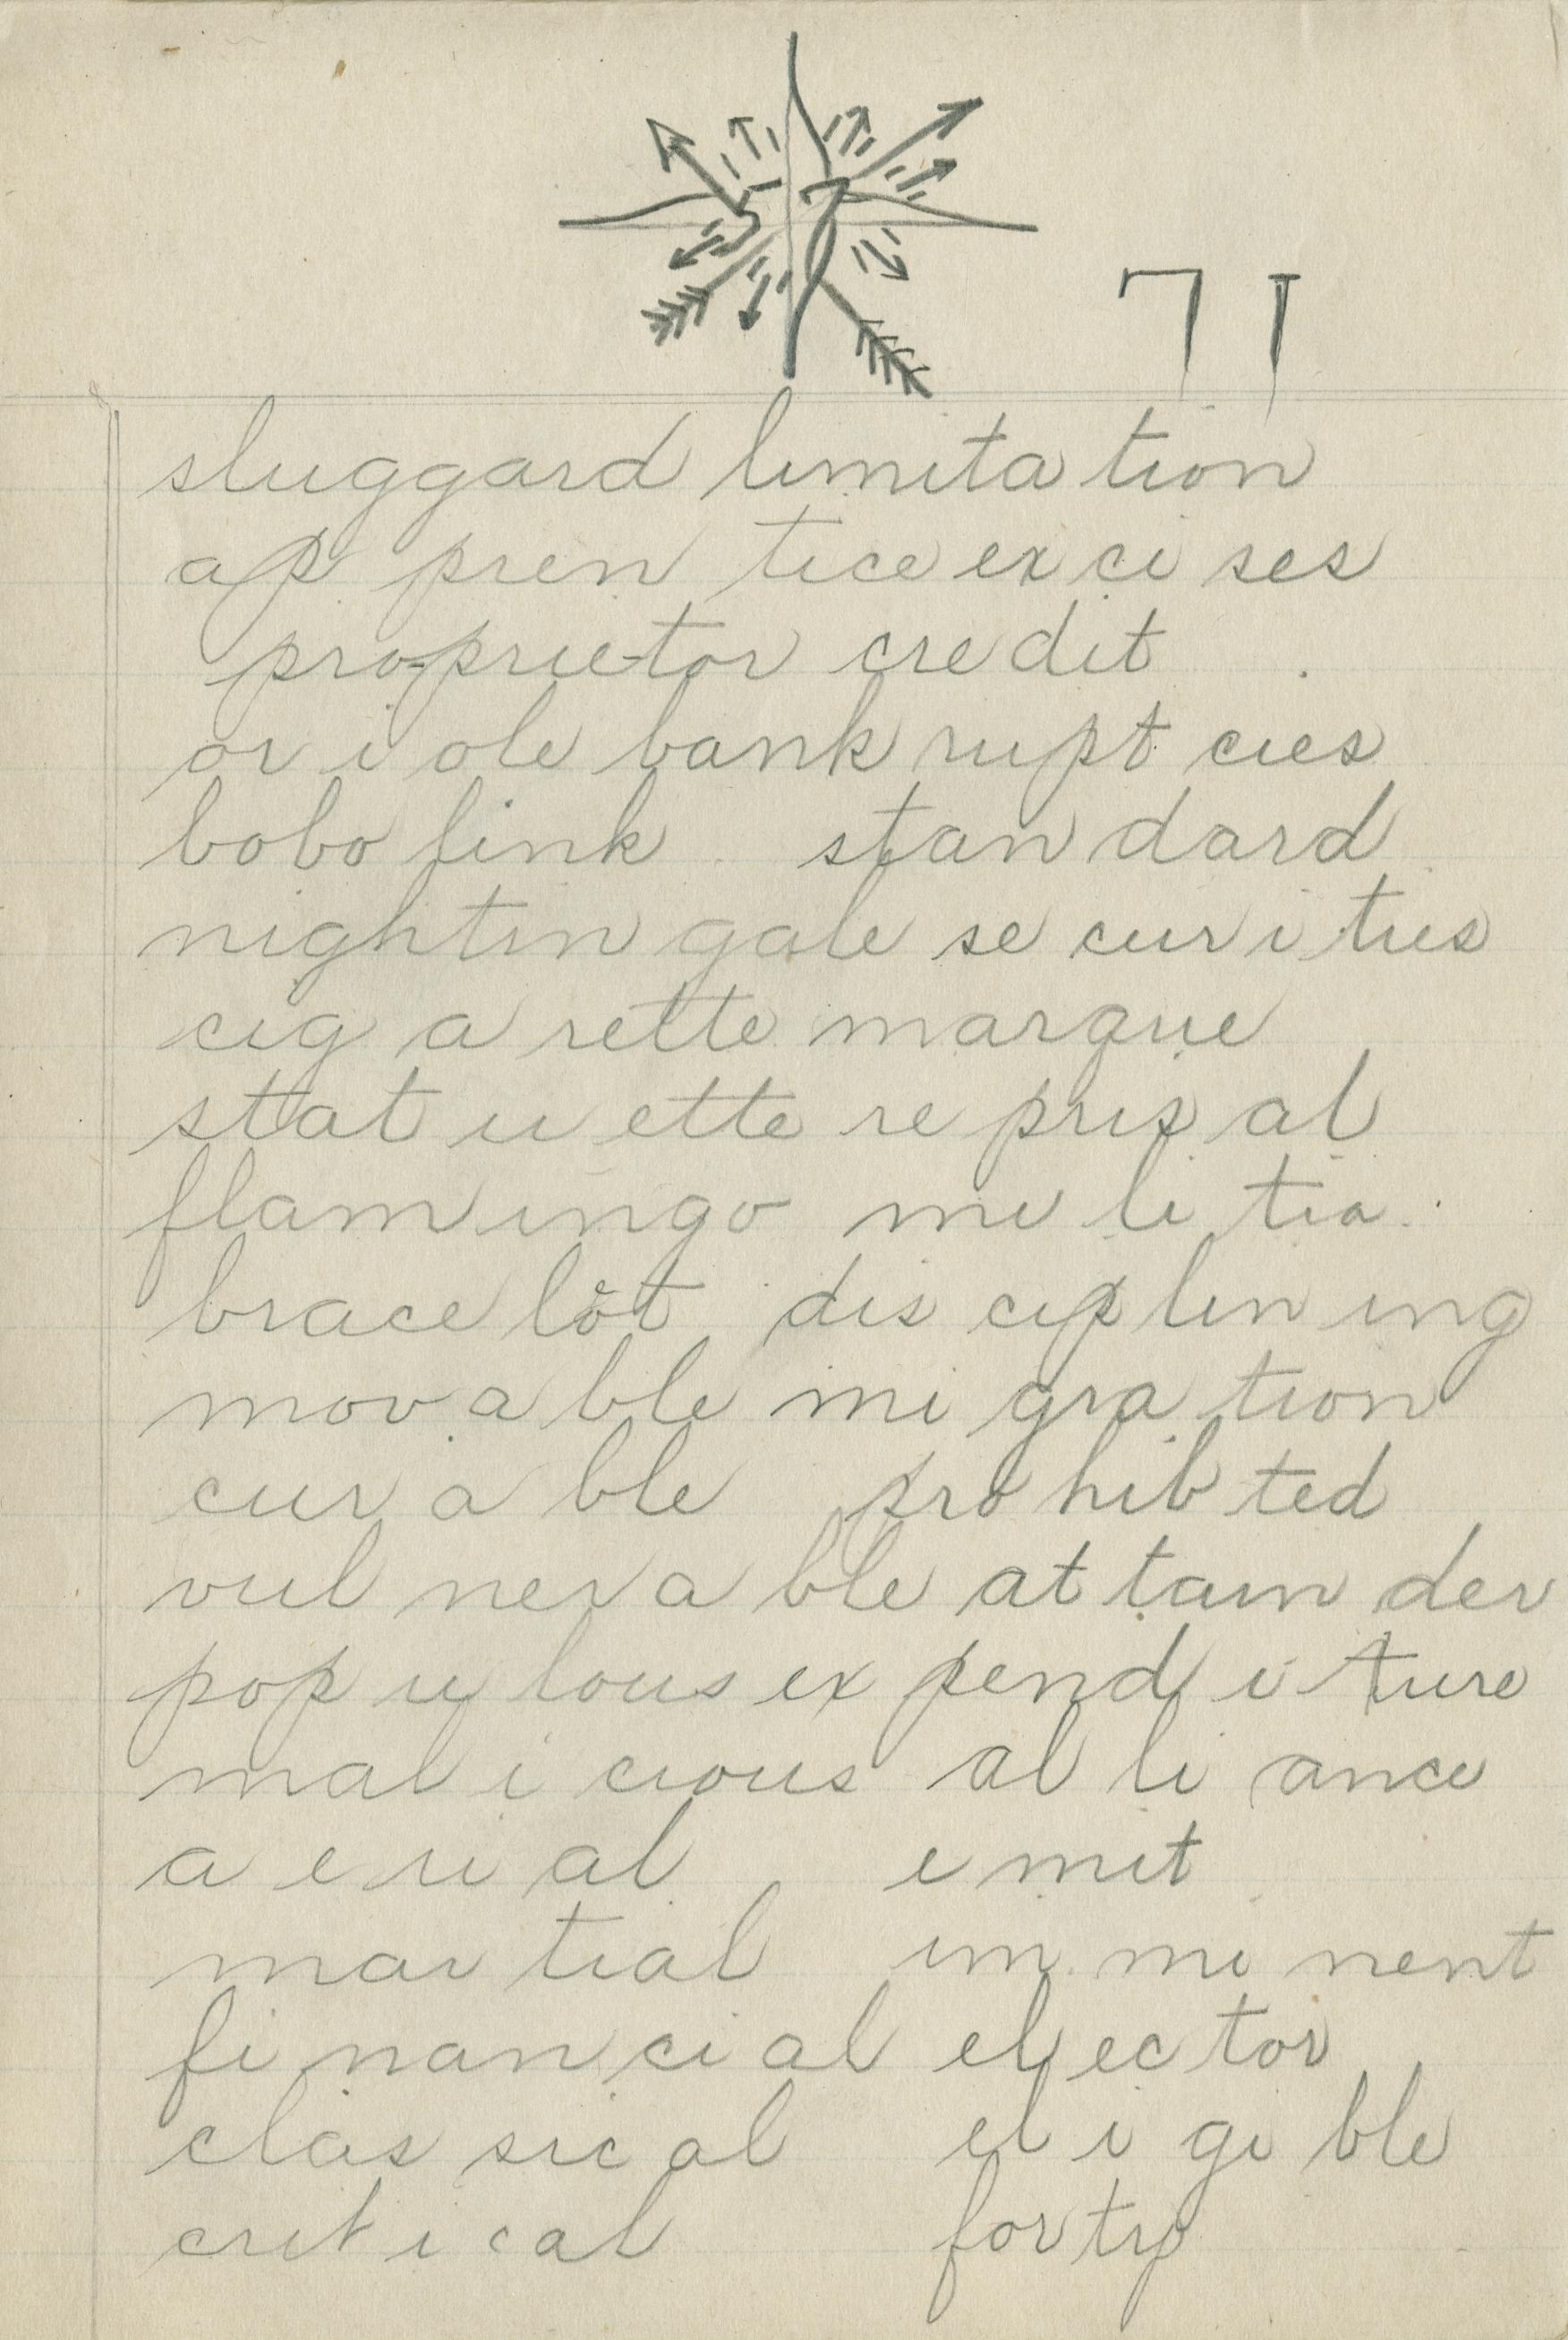 71
sluggard limita tion
ap pren tice ex ci ses
pro-prie-tor cre dit
or i ole bank rupt cies
bobo link stan dard
nightin gale se cur i ties
cig a rette marque
stat u ette re pris al
flam ingo mi li tia
brace lot dis cip lin ing
mov a ble mi gra tion
cur a ble pro hib ted
vul ner a ble at tain der
pop u lous ex pend i ture
mal i cious al li ance
a e ri al e mit
mar tial im mi nent
fi nan ci al el ec tor
clas sic al el i gi ble
crit i cal for ty